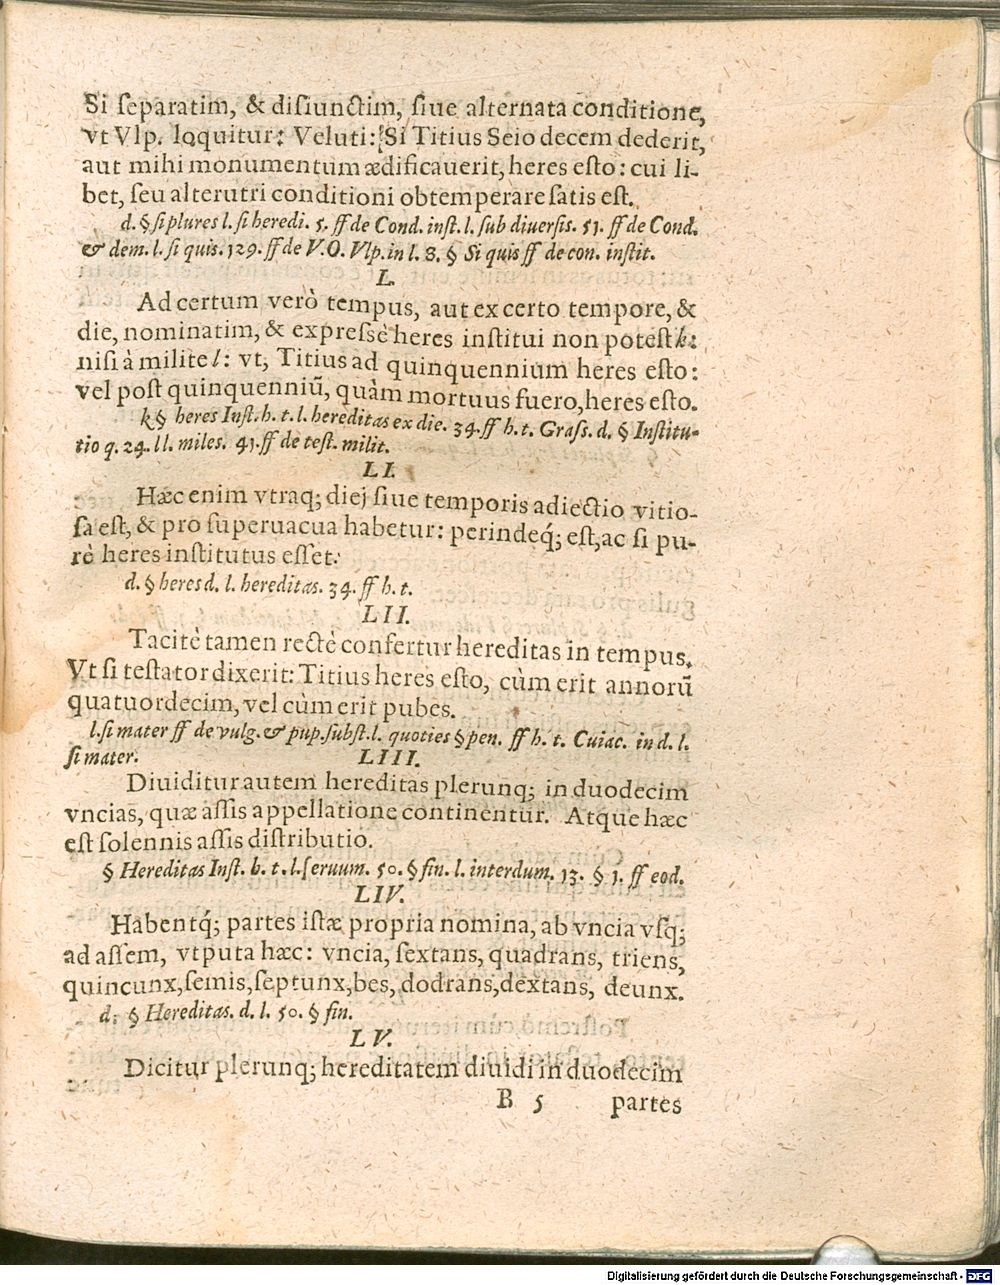 Si ſeparatim, & diſiunctim, ſiue alternata conditione,
vt Vlp. loquitur: Veluti: Si Titius Seio decem dederit,
aut mihi monumentum ædificauerit, heres eſto: cui li-
bet, ſeu alterutri conditioni obtemperare ſatis eſt.
d. § ſi plures l. ſi heredi. 5. ff de Cond. inſt. l. ſub diverſis. 51. ff de Cond.
& dem. l. ſi quis. 129. ff de V.O. Vlp. in l. 8. § Si quis ff de con. inſtit.
L.
Ad certum verò tempus, aut ex certo tempore, &
die, nominatim, & expreſsè heres inſtitui non poteſt k:
niſi à milite l: vt, Titius ad quinquennium heres eſto:
vel poſt quinquenniũ, quàm mortuus fuero, heres eſto.
k § heres Inſt. h. t. l. hereditas ex die. 34. ff h. t. Graſſ. d. § Inſtitu-
tio q. 24. l l. miles. 41. ff de teſt. milit.
LI.
Hæc enim vtraq; diei ſiue temporis adiectio vitio-
ſa eſt, & pro ſuperuacua habetur: perindeq́; eſt, ac ſi pu-
rè heres inſtitutus eſſet.
d. § heres d. l. hereditas. 34. ff h. t.
LII.
Tacitè tamen rectè confertur hereditas in tempus.
Vt ſi teſtator dixerit: Titius heres eſto, cùm erit annorũ
quatuordecim, vel cùm erit pubes.
l. ſi mater ff de vulg. & pup. ſubſt. l. quoties § pen. ff h. t. Cuiac. in d. l.
ſi mater.
LIII.
Diuiditur autem hereditas plerunq; in duodecim
vncias, quæ aſſis appellatione continentur. Atque hæc
eſt ſolennis aſſis diſtributio.
§ Hereditas Inſt. h. t. l. ſeruum. 50. § fin. l. interdum. 13. § 1. ff eod.
LIV.
Habentq́; partes iſtæ propria nomina, ab vncia vſq;
ad aſſem, vtputa hæc: vncia, ſextans, quadrans, triens,
quincunx, ſemis, ſeptunx, bes, dodrans, dextans, deunx.
d. § Hereditas. d. l. 50. § fin.
LV.
Dicitur plerunq; hereditatem diuidi in duodecim
B 5 partes
Digitalisierung gefördert durch die Deutsche Forschungsgemeinschaft - DFG